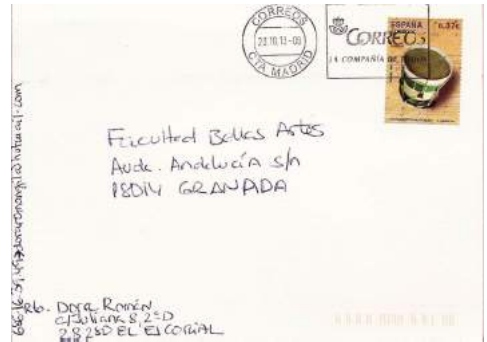 CORREOS
23.10.13-09
CTA MADRID
CORREOS
LA COMPAÑÍA DE
ESPAÑA
0,37€
Facultad Bellas Artes
Avda. Andalucía s/n
18014 GRANADA
Rb. Dora Román
c/ Juliana 8, 2ºD
28280 EL ESCORIAL